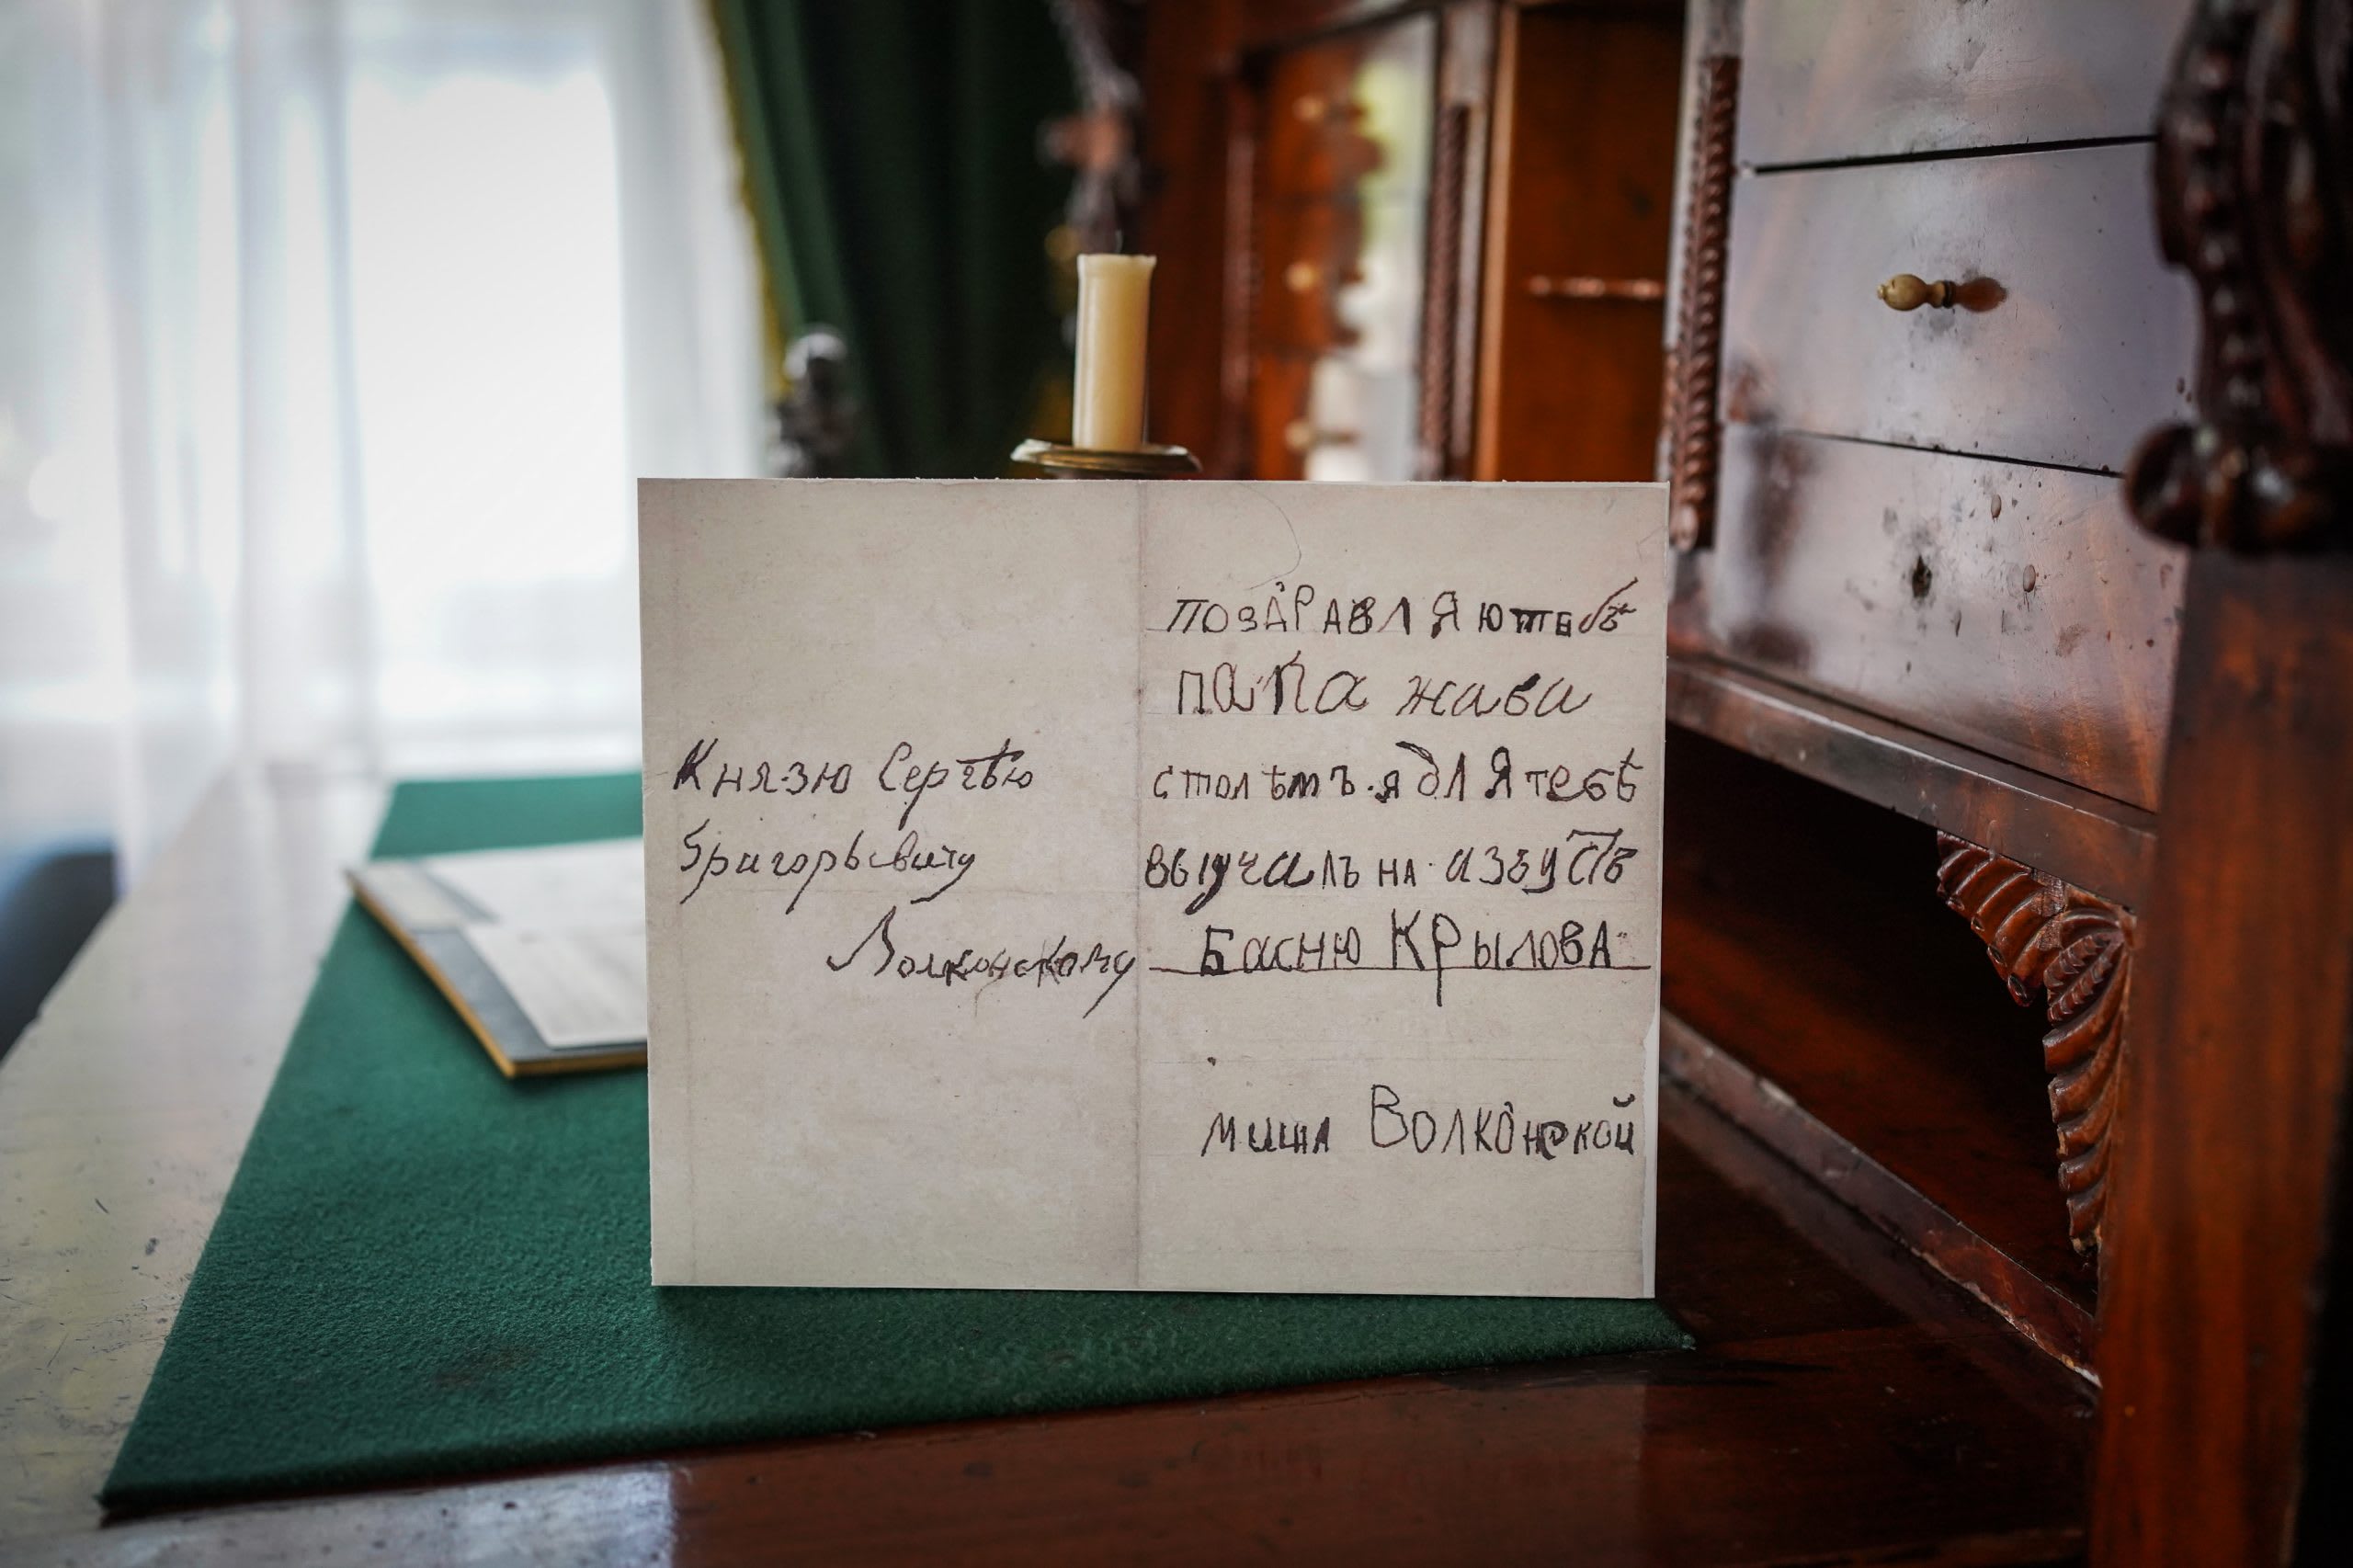 Князю Сергѣю
Григорьевичу
Волконскому
поздравляю тебѣ
папа жава
столѣтъ. я для тебѣ
выучалъ на азбустѣ
Басню Крылова
миша Волконской